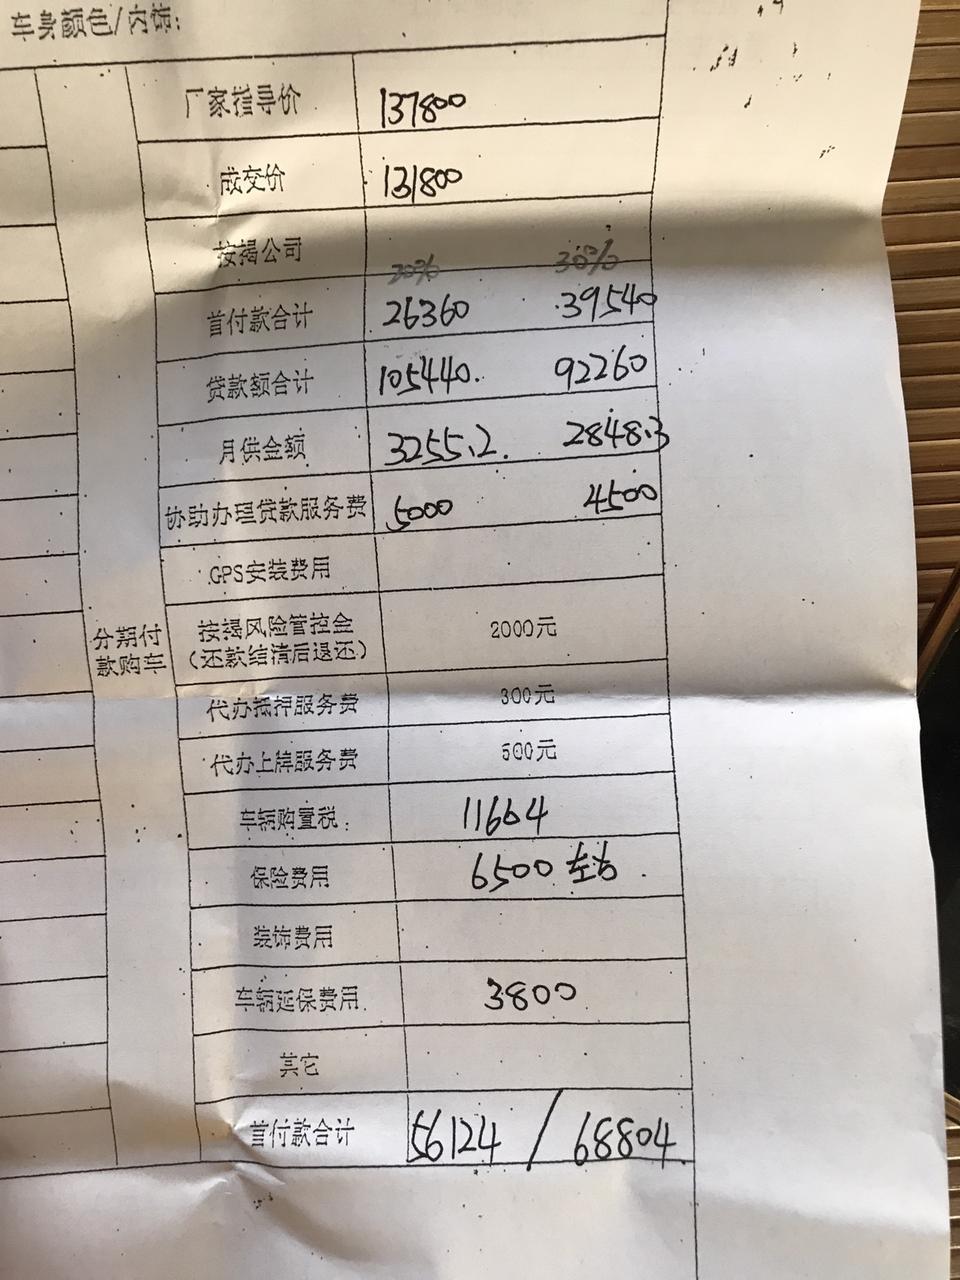 车身颜色/内饰:
厂家指导价 137800
成交价 131800
按揭公司 20% 30%
首付款合计 26360 39540
贷款额合计 105440. 92260
月供金额 3255.2. 2848.3
协助办理贷款服务费 5000 4500
GPS安装费用
分期付款购车
按揭风险管控金(还款结清后退还) 2000元
代办抵押服务费 300元
代办上牌服务费 500元
车辆购置税: 11664
保险费用 6500左右.
装饰费用
车辆延保费用 3800
其它
首付款合计 56124 / 68804